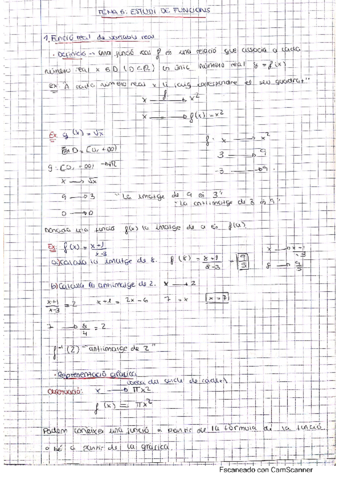 TEMA 6: ESTUDI DE FUNCIONS
1. Funció real de variable real
· Definició - una funció real f és una relació que associa a cada
número real x ∈ D (D⊂R) un únic número real y = f(x)
Ex A cada número real x li correspondre el seu quadrat
x ⟶ x²
x ⟶ f(x) = x²
Ex g(x) = √x
D = [0, +∞)
g: [0, +∞) ⟶ R
x ⟶ √x
9 ⟶ 3
0 ⟶ 0
f: x ⟶ x²
3 ⟶ 9
-3 ⟶ 9
"La imatge de 9 és 3"
"La antiimatge de 3 és 9"
Donada una funció f(x) la imatge de a és f(a)
Ex f(x) = x+1/x-3
a) Calcula la imatge de 8. f(8) = 8+1/8-3 = 9/5
x ⟶ x+1/x-3
8 ⟶ 9/5
b) Calcula la antiimatge de 2. x ⟶ 2
x+1/x-3 = 2 x+1 = 2x-6 7 = x x=7
7 ⟶ 8/4 = 2
f⁻¹(2) "antiimatge de 2"
· Representació gràfica
x ⟶ πx²
f(x) = πx²
Podem conèixer una funció a partir de la fórmula de la funció
o bé a partir de la gràfica
Escaneado con CamScanner